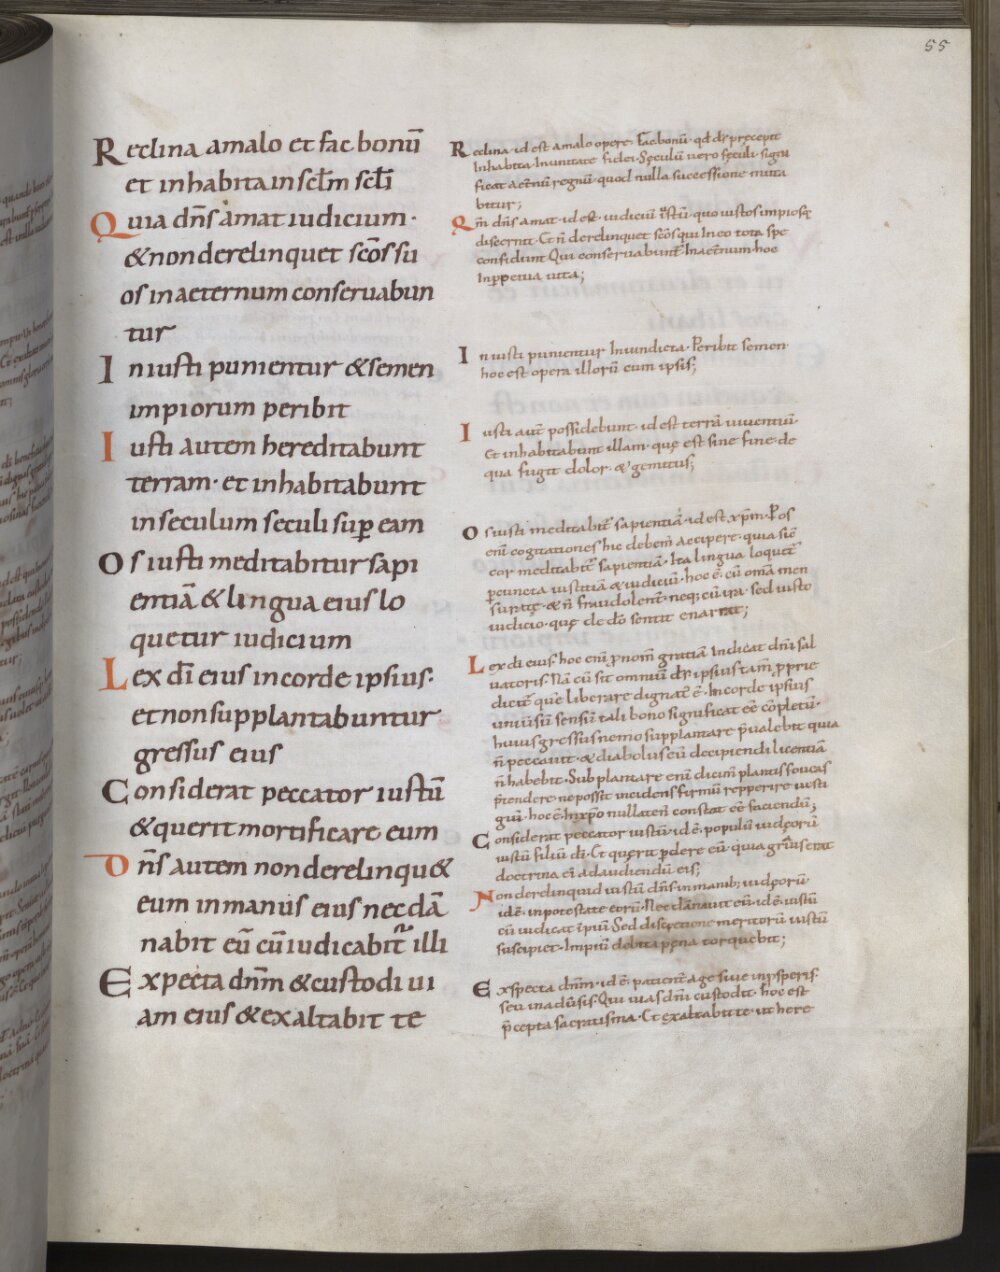 55
Reclina amalo et fac bonū
et inhabita in sclm scli
Quia dn̄s amat iudicium·
& non derelinquet scōs su
os in aeternum conseruabun
tur
Iniusti punientur & semen
impiorum peribit
Iusti autem hereditabunt
terram· et inhabitabunt
in seculum seculi sup eam
Os iusti meditabitur sapi
entiā & lingua eius lo
quetur iudicium
Lex dī eius in corde ipsius·
et non supplantabuntur
gressus eius
Considerat peccator iustū
& querit mortificare eum
Dn̄s autem non derelinqu&
eum in manus eius nec dā
nabit eū cū iudicabit illi
Expecta dnm & custodi ui
am eius & exaltabit te
Reclina· id est amalo opere· Fac bonū· qd ds precepit
Inhabita In unitate fidei· Seculū uero seculi signi
ficat aetnū regnū· quod nulla successione muta
bitur;
Qm̄ dn̄s amat· id est· iudiciū iustū· quo iustos impiosq;
discernit· Et n̄ derelinquet scōs qui In eo tota spe
confidunt Qui conseruabunt In aetnum hoc
Inppetua uita;
Iniusti punientur In uindicta· Peribit semen·
hoc est opera illorū cum ipsis;
Iusti aut possidebunt· id est terrā uiuentiū·
Et inhabitabunt illam· quę est sine fine· de
qua fugit dolor· & gemitus;
Os iusti meditabit sapientiā· id est xpm· Pos
enī cogitationes hic debem accipere· quia sic
cor meditabit sapientiā· Ita lingua loquet
p cuncta iustitiā & iudiciū· hoc ē· cū omā men
suratę· & n̄ fraudolent· neq; cū ira· sed iusto
iudicio· quę de dō sentit enarrat;
Lex di eius· hoc enī pnom gratiā Indicat dnī sal
uatoris· Nā cū sit omniū ds· ipsius tam pprie
dicit que liberare dignat ē· In corde ipsius
uniūsū sensū tali bono significat eē cōpletū·
huius gressus nemo supplantare pualebit quia
n̄ peccauit· & diabolus eū decipiendi licentiā
n̄ habebit· Subplantare enī dicim plantis foueas
ptendere· ne possit incidens firmū repperire uesti
giū· hoc ē In xpo nullaten constat eē faciendū;
Considerat peccator iustū· id ē· populū iudeorū
iustū filiū dī· Et querit pdere eū· quia grauis erat
doctrina ei adaudiendū eis;
Non derelinquid iustū dn̄s in manib; iudeorū·
id ē· in potestate eorū· Nec dānauit eū· id ē· iustū
cū iudicat ipiū· Sed discretione meritorū iustū
suscipiet· Impiū debita pęna torquebit;
Exspecta dnm· id ē· patient age siue inpsperis·
seu in aduersis· Qui uias dnī custodit· hoc est
pcepta sacratisima· Et exaltabit te· ut here